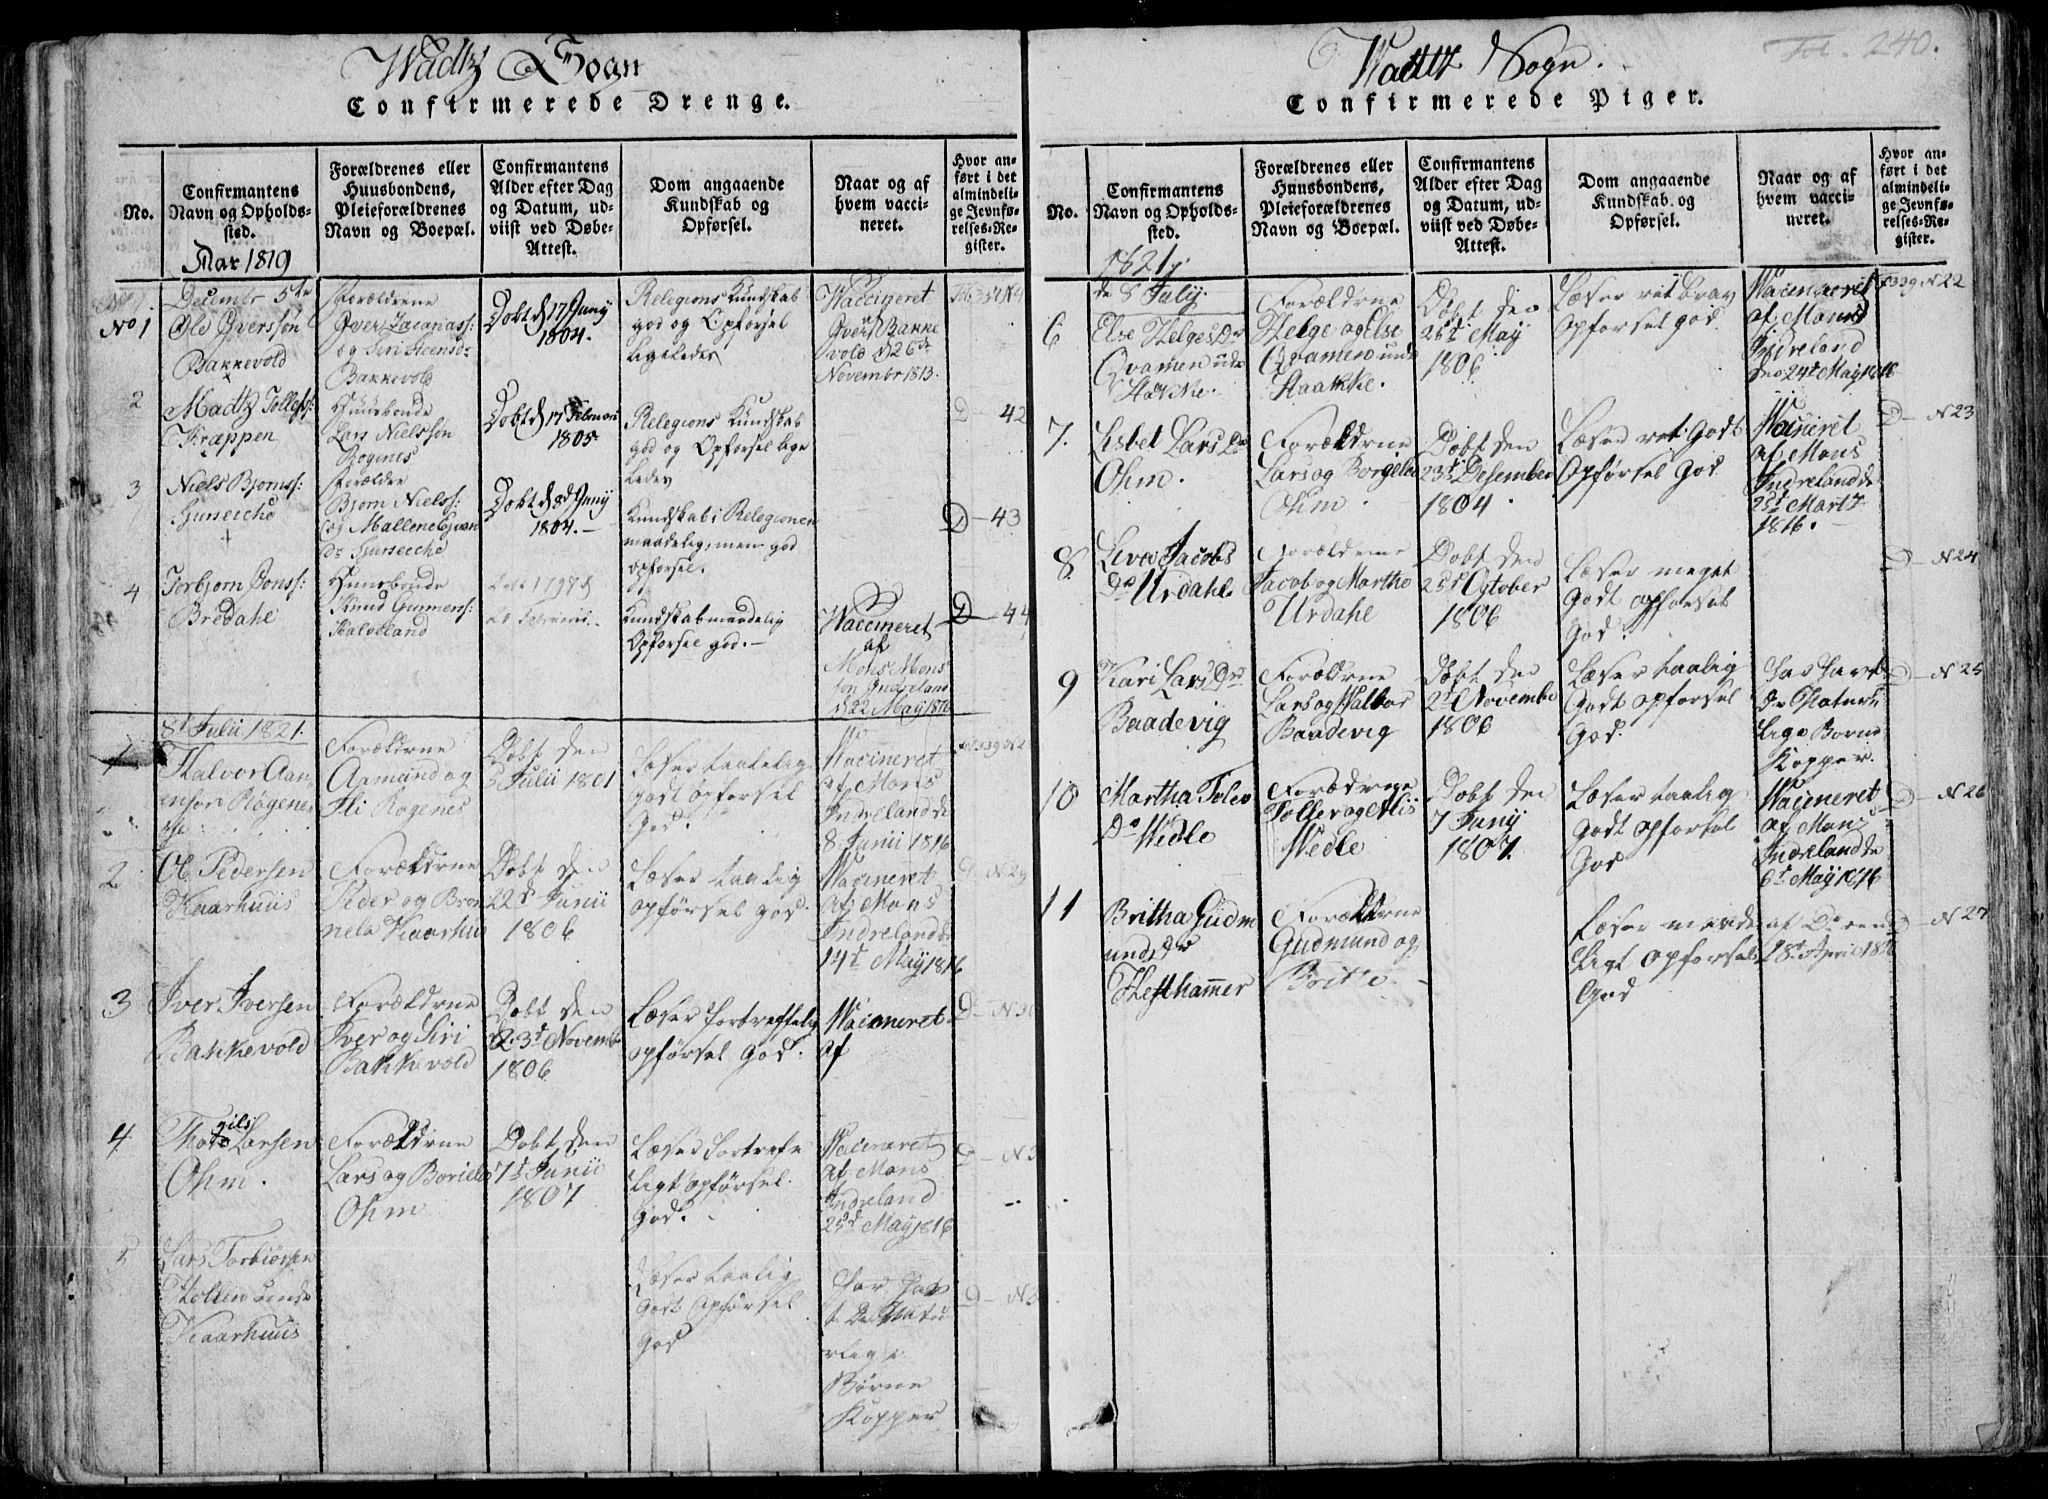 Wadtz Sogn
Confirmerede Drenge.
No.
Confirmantens Navn og Opholds-sted.
Forældrenes eller Huusbondens, Pleieforældrenes Navn og Boepæl.
Confirmantens Alder efter Dag og Datum, ud-viist ved Døbe-Attest.
Dom angaaende Kundskab og Opførsel.
Naar og af hvem vacci-neret.
Hvor an-ført i det almindeli-ge Jevnfø-relses-Re-gister.
Aar 1819
Decembr 5te
No 1
Ole Iverssøn
Bakkevold
Forældrene
Bakkevold
Døbt d 17 Junij
1804.
Religions Kundskab
god og Opførsel
ligeledes
Waccineret
af
Iver Bakke
vold d 26de
Novembr 1813.
2
Madtz Tollefss:
Kræppen
Huusbonde
Lars Nielssøn
Røgenes
Døbt d 17 Februari
1805
Religions Kundskab
god og Opførsel lige
ledes
D — 42
3
Niels Bjørnss:
Forældre
Bjørn Nielss:
Døbt d 8d Junij
1804.
Kundskab i Religionen
maadelig, men god
opførsel.
D — 43
4
Torbjørn Jonss:
Bredahl
Huusbonde
Knud Gunnerss:
Kundskab maadelig
Opførsel god.
Waccineret
af
Mons Mons
søn Indreland
d 22 May 1816
D — 44
8d Julii 1821.
1
Halvor Aa
Røgene
Forældrne
Aamund og
Røgenes
Døbt den
5 Julii 1801
Læser taalelig
godt opførsel
God.
Wacineret
af Mons
Indreland de
8 Junii 1816
2
Ole Pedersen
Kaarhuus
Forældrne
Peder og Bron
nela Kaarhuus
Døbt den
22d Junii
1806
Læser taalig
opførsel god.
Wacineret
af Mons
Indreland de
14t May 1816
D — N 29
3
Iver Iversen
Bakkevold
Forældrne
Iver og Siri
Bakkevold
Døbt den
23t Novemb
1806
Læser fortreffelig
opførsel God.
Wacineret
af
D — N 30
4
Thorgils Larsen
Ohm.
Forældrne
Lars og
Ohm
Døbt den
7t Junii
1807
Læser fortrefe
ligt opførsel
God.
Wacineret
af Mons
Indreland
25d May 1816
D — N 3
5
Lars Torbiørsen
Kaarhuus
Læser taalig
godt Opførsel
God
Har hav
t De Natu
rlige
Børne
Kopper
D — N 3
Wadtz Sogn.
Fol. 240.
Confirmerede Piger.
No.
Confirmantens Navn og Opholds-sted.
Forældrenes eller Huusbondens, Pleieforældrenes Navn og Boepæl.
Confirmantens Alder efter Dag og Datum, ud-viist ved Døbe-Attest.
Dom angaaende Kundskab og Opførsel.
Naar og af hvem vacci-neret.
Hvor an-ført i det almindeli-ge Jevnfø-relses-Re-gister.
1821.
de 8 Julij.
6
Else Helges Dr
Qvamen ude
Forældrne
Helge og Else
Qvamen unde
Staakke.
Døbt den
25t May
1806
Læser ret brav
Opførsel god.
Wacineret
af Mons
Indreland
24t May 1816
F 339 N 22
7.
Lisbet Lars Dr
Ohm.
Forældrne
Lars og Borgela
Ohm.
Døbt den
23t Desember
1804
Læser ret Godt
Opførsel God
Wacineret
af Mons
Indreland de
25t Martz
1816.
D — N 23
8.
Jacobs
Dr Urdahl.
Forældrene
Jacob og Martha
Urdahl
Døbt den
25t October
1806
Læser meget
Godt opførsel
God.
D — N 24
9
Kari Lars Dr
Baadevig
Forældrne
Lars og Walbor
Baadevig
Døbt den
2t Novembe
1806
Læser taalig
Godt opførsel
God.
Har havt
De Natur
lige Børne
Kopper.
N 25
10
Martha Tolev
Dr Wedle
Forældrene
Tollev og
Wedle
Døbt den
7 Junij
1807
Læser taalig
Godt opførsel
God
Wacineret
af Mons
Indreland de
6t May 1816
D — N 26
11
Britha Gudm
unds Dr
Hesthammer
Forældrne
Gudmund og
Brithe.
Læser maade
ligt opførsel
God
af De
18t April
N 27